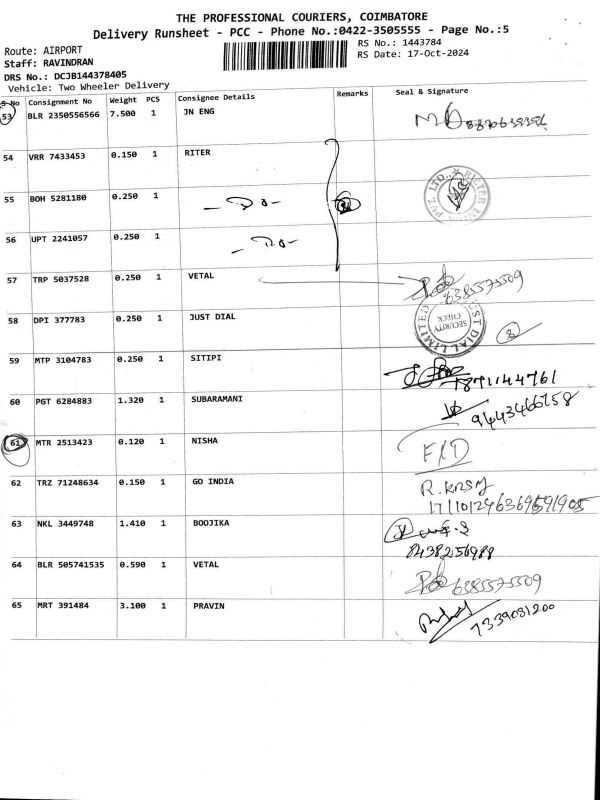 THE PROFESSIONAL COURIERS, COIMBATORE
Delivery Runsheet - PCC - Phone No.:0422-3505555 - Page No.:5
Route: AIRPORT
RS No.: 1443784
Staff: RAVINDRAN
RS Date: 17-Oct-2024
DRS No.: DCJB144378405
Vehicle: Two Wheeler Delivery
S No Consignment No Weight PCS Consignee Details Remarks Seal & Signature
53 BLR 2350556566 7.500 1 JN ENG
54 VRR 7433453 0.150 1 RITER
55 BOH 5281180 0.250 1 -Do-
56 UPT 2241057 0.250 1 -Do-
57 TRP 5037528 0.250 1 VETAL 6385575509
58 DPI 377783 0.250 1 JUST DIAL SECURITY CHECK
59 MTP 3104783 0.250 1 SITIPI 7871144761
60 PGT 6284883 1.320 1 SUBARAMANI 9443466758
61 MTR 2513423 0.120 1 NISHA F/D
62 TRZ 71248634 0.150 1 GO INDIA
63 NKL 3449748 1.410 1 BOOJIKA 8438256988
64 BLR 505741535 0.590 1 VETAL 6385575509
65 MRT 391484 3.100 1 PRAVIN 7339081200